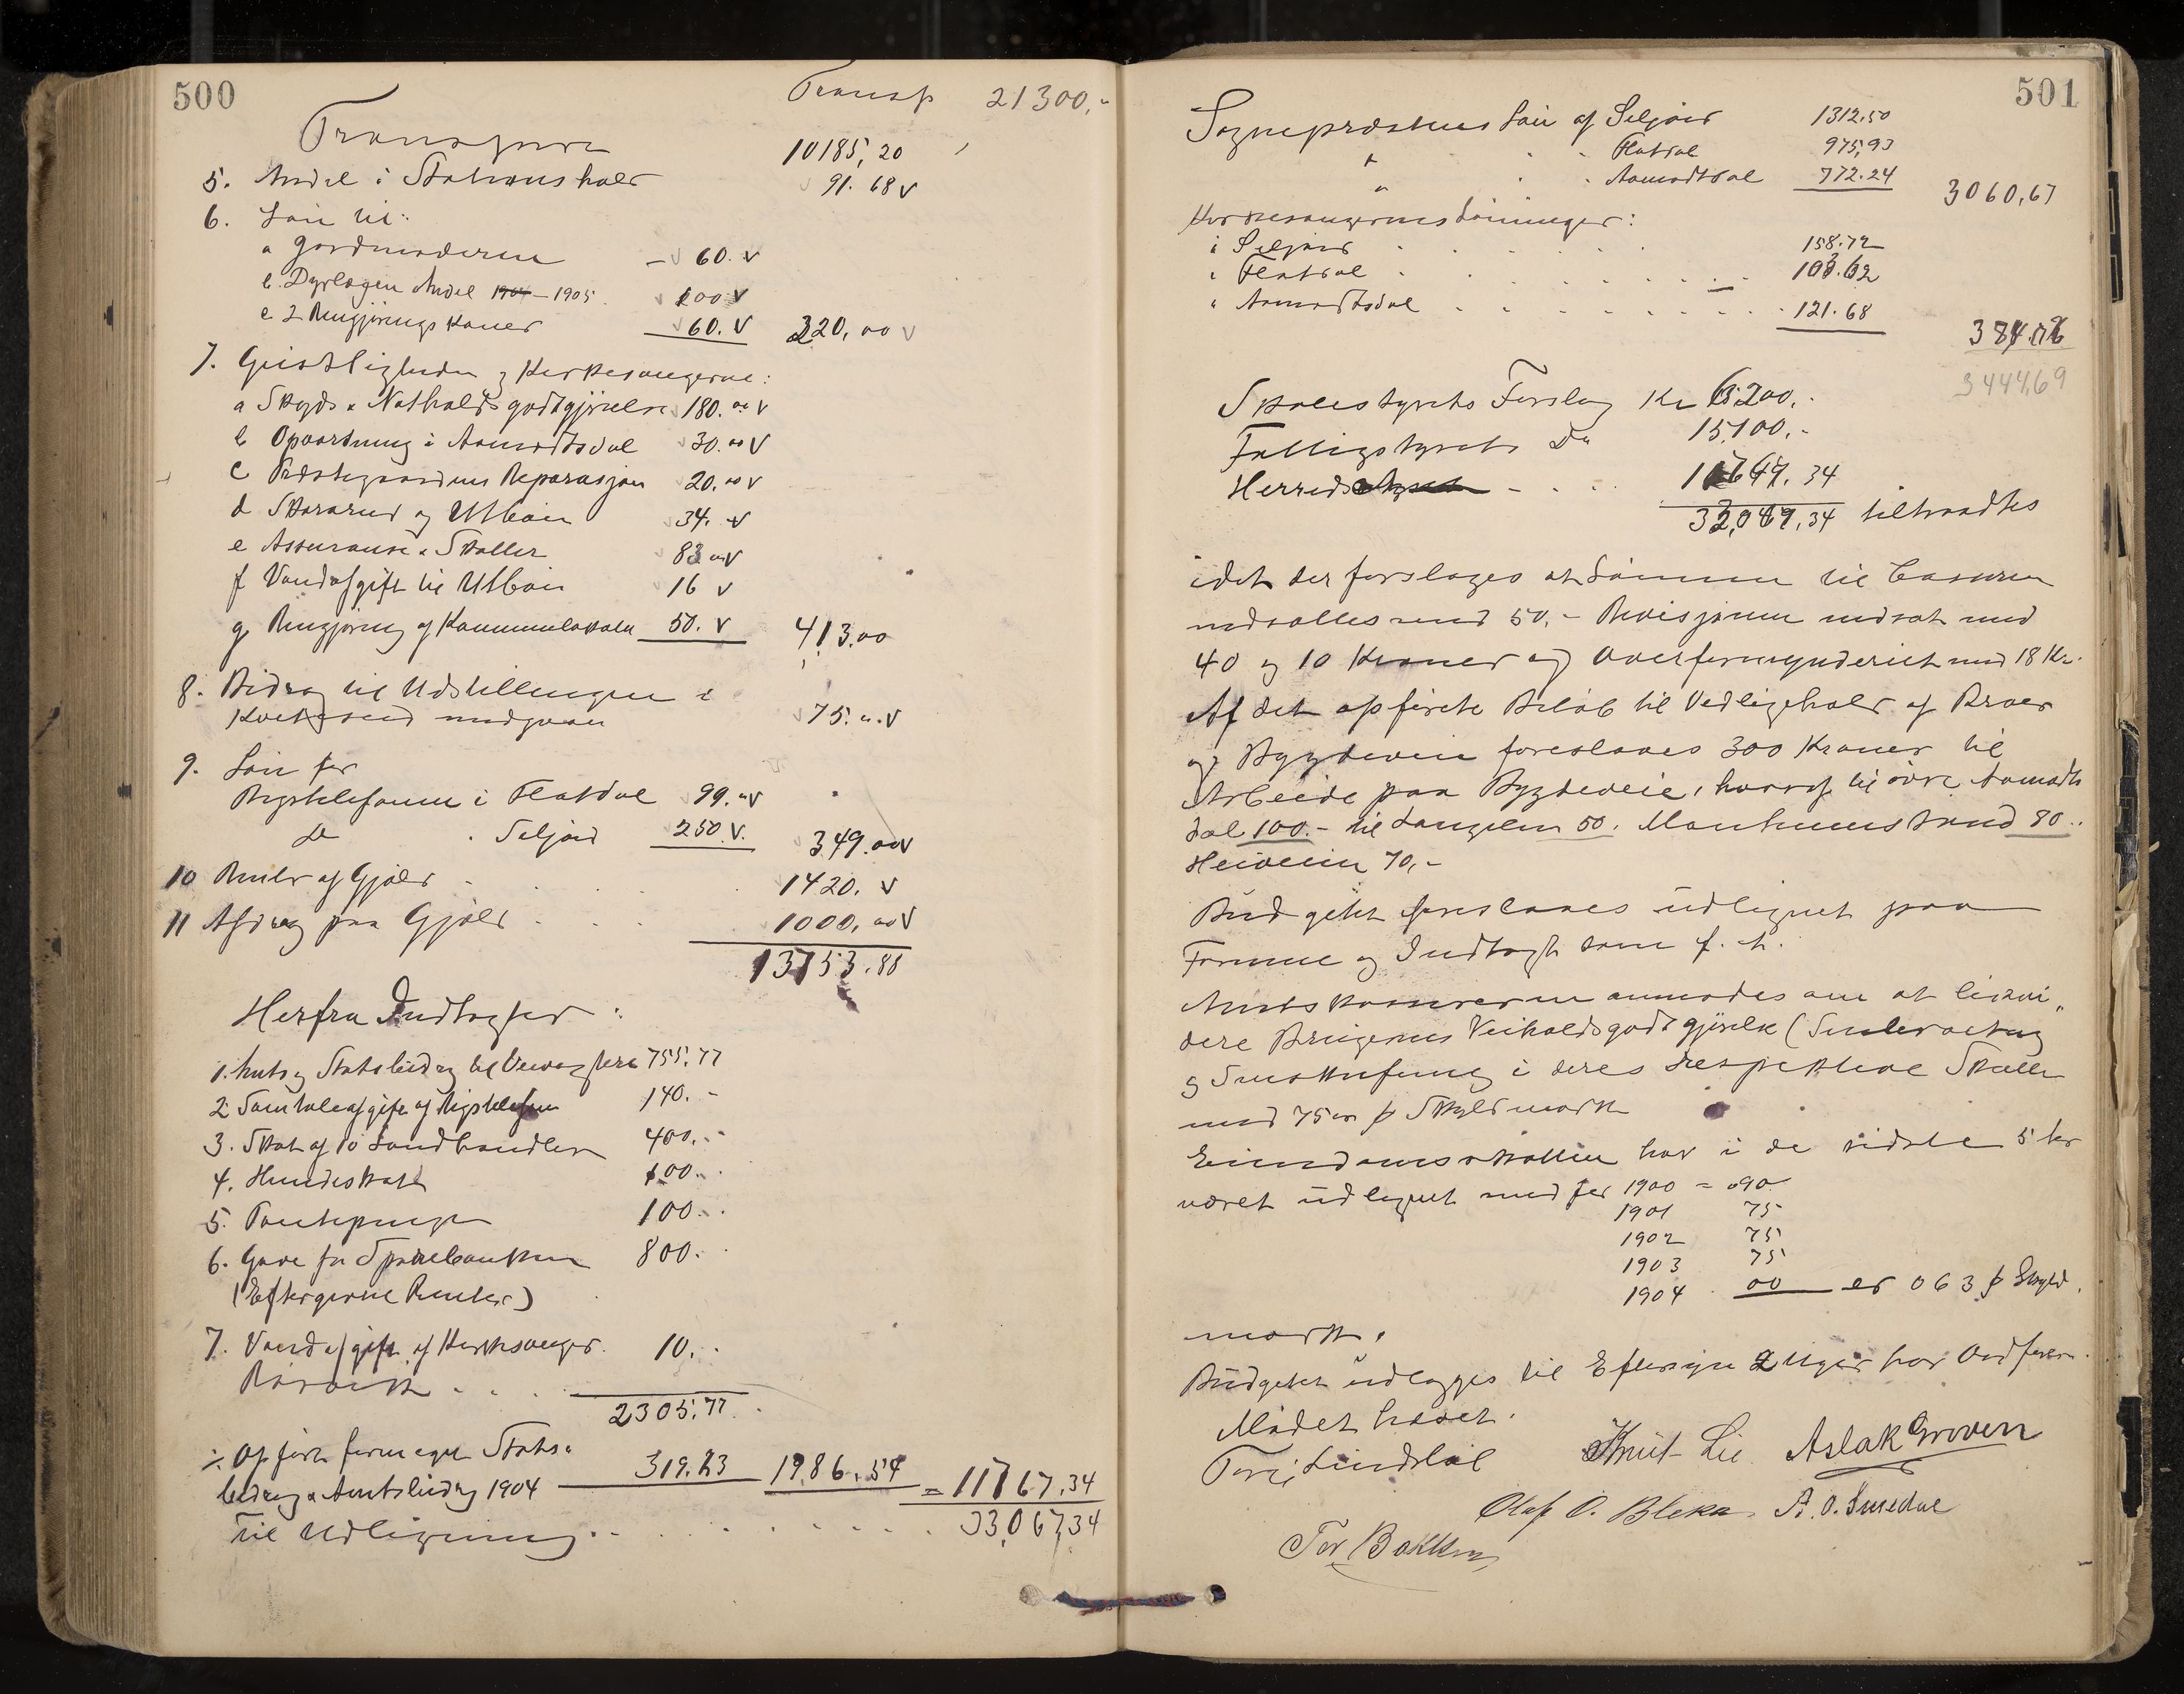 500
Transp 21300,-
Transport 10185,20
5. Andel i Skatten's hold 91.68 v
6. Løn til:
a Gjordmoderen 60. v
b. Dyrlægen Andel 1904 - 1905. 200 v
c 2 Rengjøringskoner 60. v 320,00 v
7. Geistligheden og Kirkesangerne:
a Skyds & Natholdsgodtgjørelse 180.00 v
b Opvartning i Aamodtsdal 30.00 v
c Præstegaardens Reparasjon 20.00 v
d og Utbøin 34. v
e Assurance & Skatter 83 00 v
f Vandafgift til Utbøin 16 v
g Rengjøring af Kommunelokalet 50. v 413.00
8. Bidrag til Udstillingen i
Kviteseid 75.00 v
9. Løn for
Rigstelefonen i Flatdal 99.00 v
do . Seljord 250 v. 349.00 v
10 Renter af Gjæld 1420. v
11 Afdrag paa Gjæld 1000,00 v
13753.88
Herfra Indtægter:
1. Amts og Statsbidrag til 755.77
2 Samtaleafgift af Rigstelefon 140.-
3. Skat af 10 Landhandlere 400.-
4. Hundeskat 100.
5. 100.
6. Gave fra Sparebanken 800.
(Eftergivne Renter)
7. Vandafgift af Kirkesanger 10.
2305.77
÷ Opført Stats
bidrag & Amtsbidrag 1904 319.23 1986.54 = 11767.34
Til Udligning 33,067,34
501
Sognepræstens Løn af Seljord 1312.50
" . . Flatdal 975,93
" . . Aamodtsdal 772.24 3060,67
Kirkesangernes Lønninger:
i Seljord 158.72
i Flatdal 103.62
" Aamodtsdal 121.68
384.02
3444,69
Skolestyrets Forslag Kr 6200,-
Fattigstyrets Do 15,100,-
Herreds 11 34
34 tiltraadtes
idet der forslages at Lønnen til Casseren
nedsættes med 50.- Revisjonen nedsat med
40 og 10 Kroner og Overformynderiet med 18 Kr.
Af det opførte Beløb til Vedligehold af Broer
og Bygdeveie foreslaaes 300 Kroner til
Arbeide paa Bygdeveie, hvoraf til øvre Aamodts
dal 100.- til Langelim 50. 80.
Heiveien 70,-
Budgettet foreslaaes udlignet paa
Formue og Indtægt som f. A.
Amtskassereren anmodes om at likvi
dere Brugernes Veiholdsgodtgjørelse (
og Sneskufning i deres respektive Skatter
med 75 øre pr Skyldmark
Eiendomsskatten har i de sidste 5 Aar
været udlignet med for 1900 = 090
1901 75
1902 75
1903 75
1904 00 er 063 pr Skyld
mark.
Budgettet udlægges til Eftersyn 2 Uger hos Ordføreren.
Mødet hævet.
Torj Lindsløl Knut Lie Aslak Groven
Olaf O. Bleka A. O. Smedal
Tor Bakken